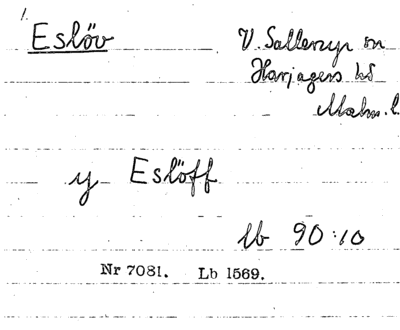 1.
Eslöv
V. Sallerups sn
Harjagers hd
Malm. l.
y Eslöff
lb 90:10
Nr 7081. Lb 1569.